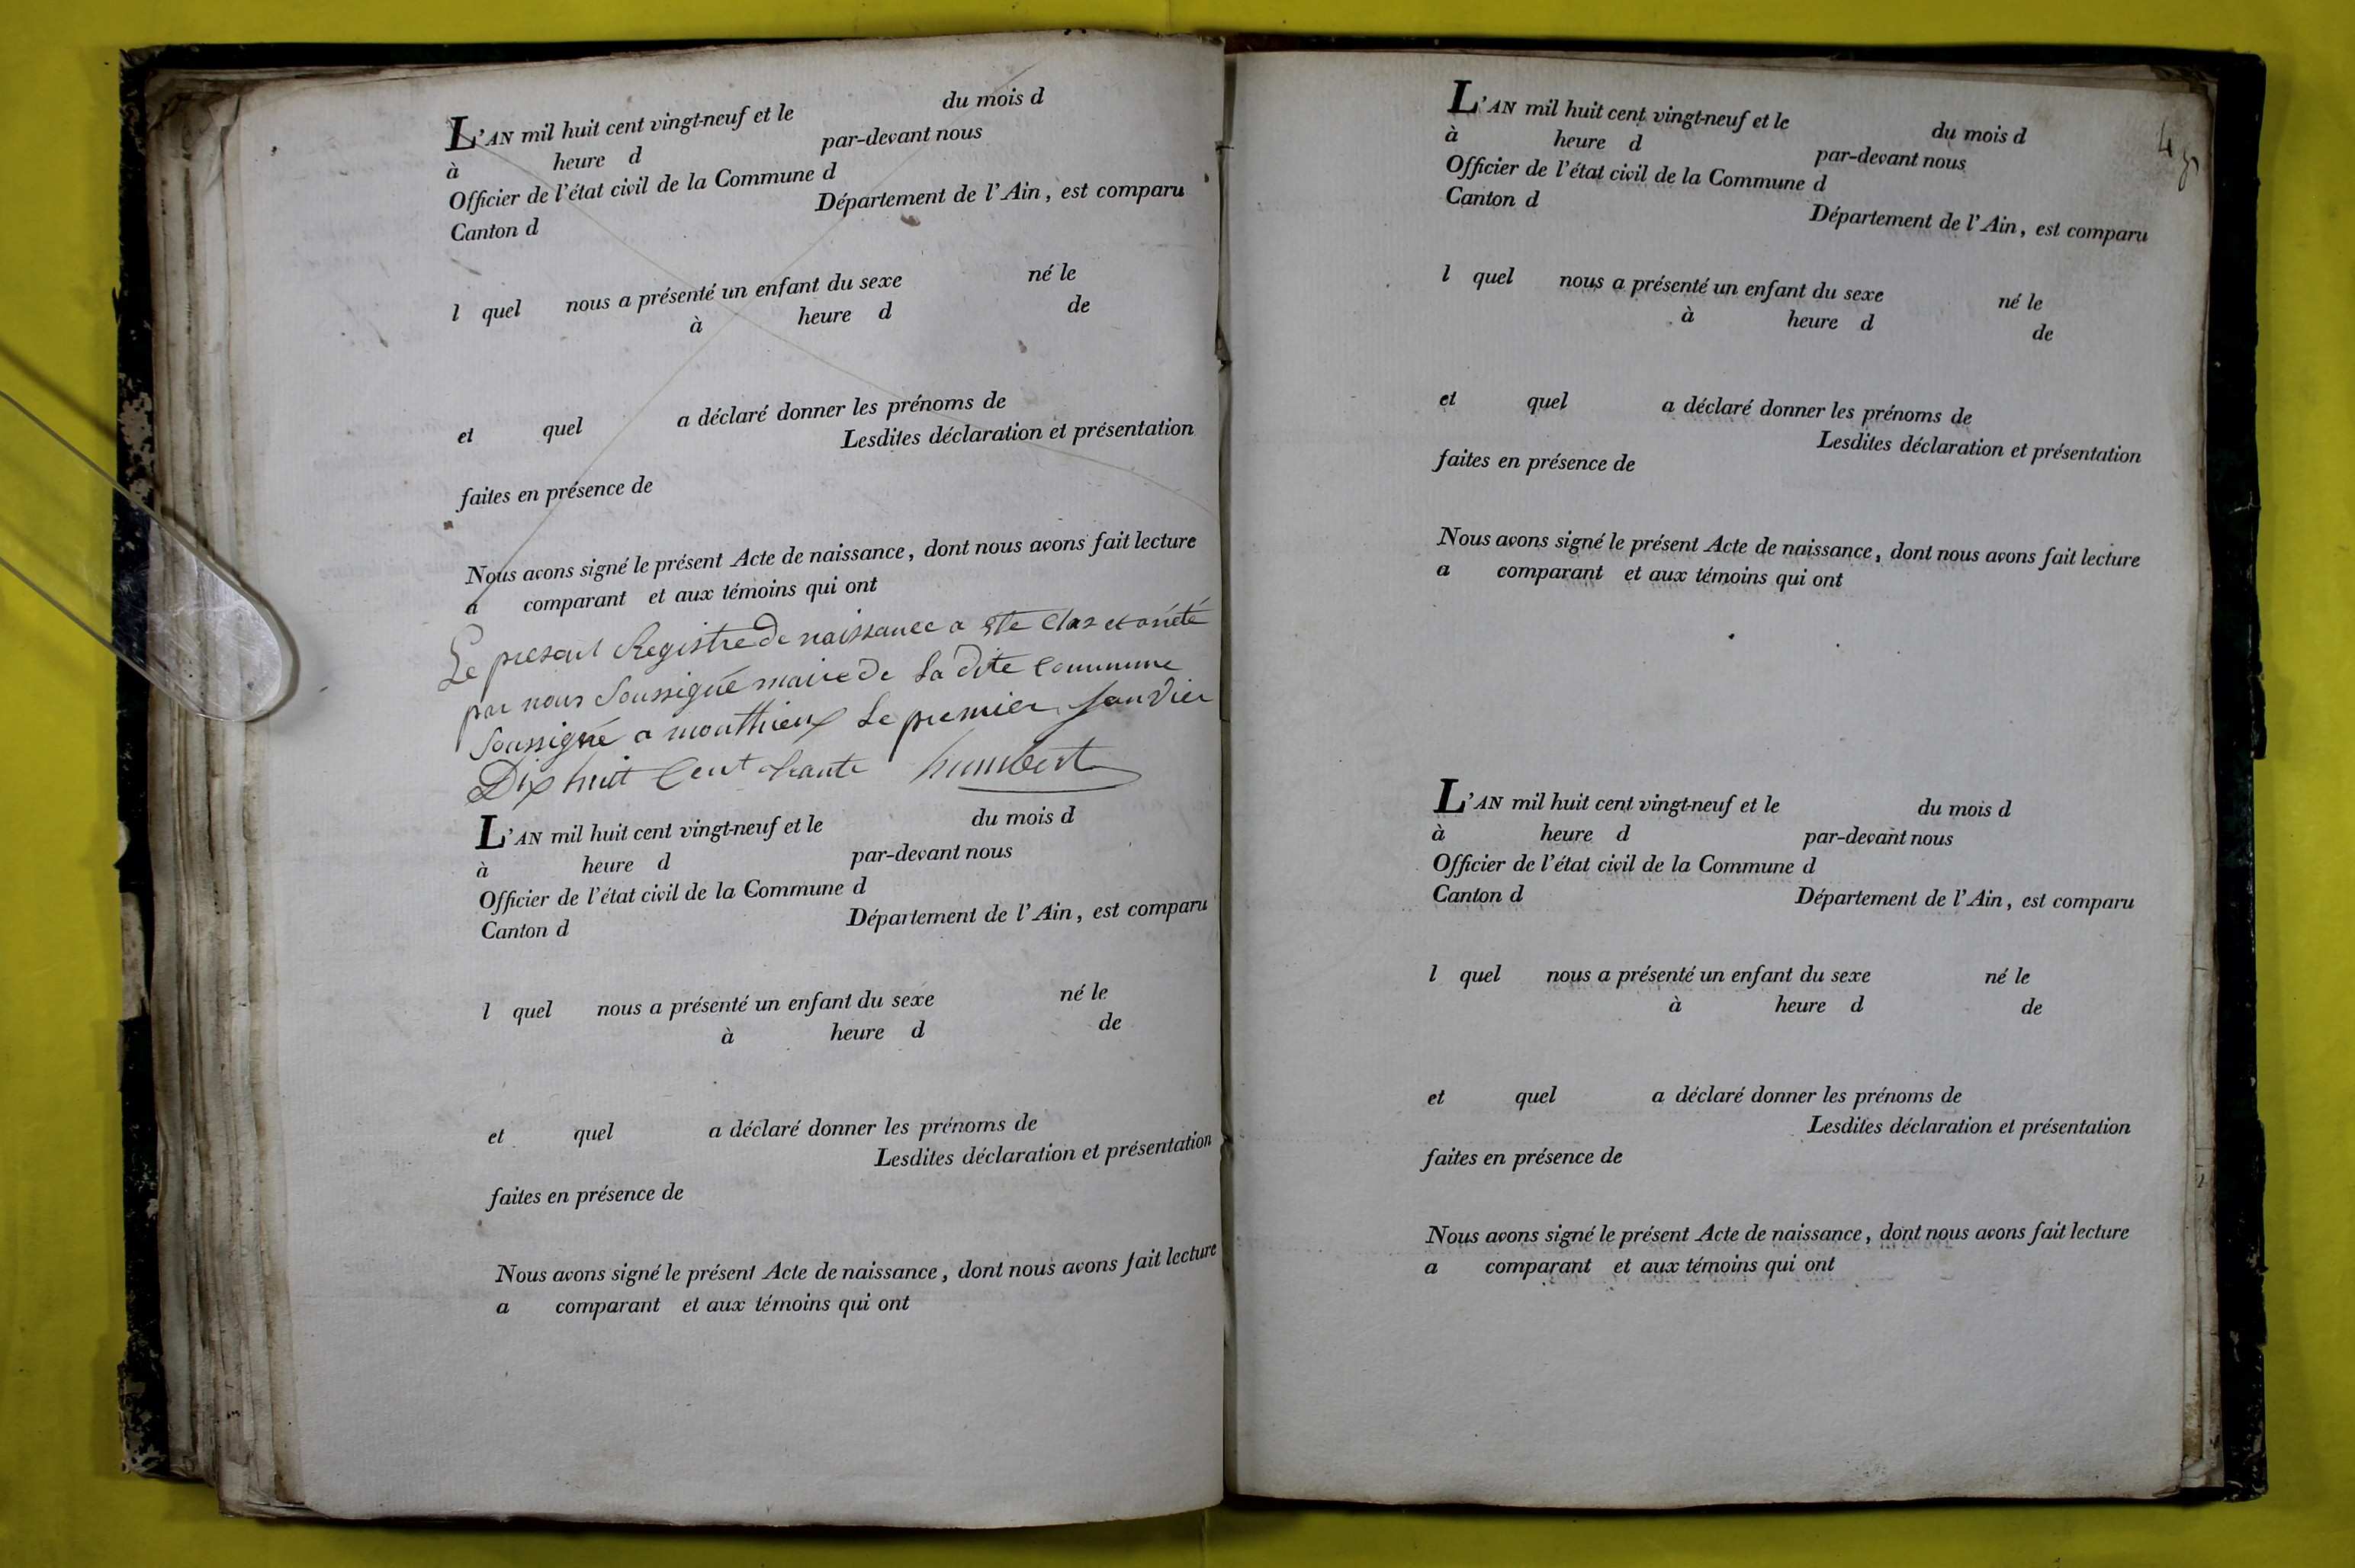 L'AN mil huit cent vingt-neuf et le du mois d
à heure d par-devant nous
Officier de l'état civil de la Commune d
Canton d Département de l'Ain, est comparu
l quel nous a présenté un enfant du sexe né le
à heure d de
et quel a déclaré donner les prénoms de
Lesdites déclaration et présentation
faites en présence de
Nous avons signé le présent Acte de naissance, dont nous avons fait lecture
a comparant et aux témoins qui ont
Le present Registre de naissance a ete Clos et arrété
par nous Soussigné maire de La dite Commune
Soussigné a monthieux Le premier Janvier
Dix huit Cent trante humbert
L'AN mil huit cent vingt-neuf et le du mois d
à heure d par-devant nous
Officier de l'état civil de la Commune d
Canton d Département de l'Ain, est comparu
l quel nous a présenté un enfant du sexe né le
à heure d de
et quel a déclaré donner les prénoms de
Lesdites déclaration et présentation
faites en présence de
Nous avons signé le présent Acte de naissance, dont nous avons fait lecture
a comparant et aux témoins qui ont
L'AN mil huit cent vingt-neuf et le du mois d
à heure d par-devant nous
Officier de l'état civil de la Commune d
Canton d Département de l'Ain, est comparu
l quel nous a présenté un enfant du sexe né le
à heure d de
et quel a déclaré donner les prénoms de
Lesdites déclaration et présentation
faites en présence de
Nous avons signé le présent Acte de naissance, dont nous avons fait lecture
a comparant et aux témoins qui ont
L'AN mil huit cent vingt-neuf et le du mois d
à heure d par-devant nous
Officier de l'état civil de la Commune d
Canton d Département de l'Ain, est comparu
l quel nous a présenté un enfant du sexe né le
à heure d de
et quel a déclaré donner les prénoms de
Lesdites déclaration et présentation
faites en présence de
Nous avons signé le présent Acte de naissance, dont nous avons fait lecture
a comparant et aux témoins qui ont